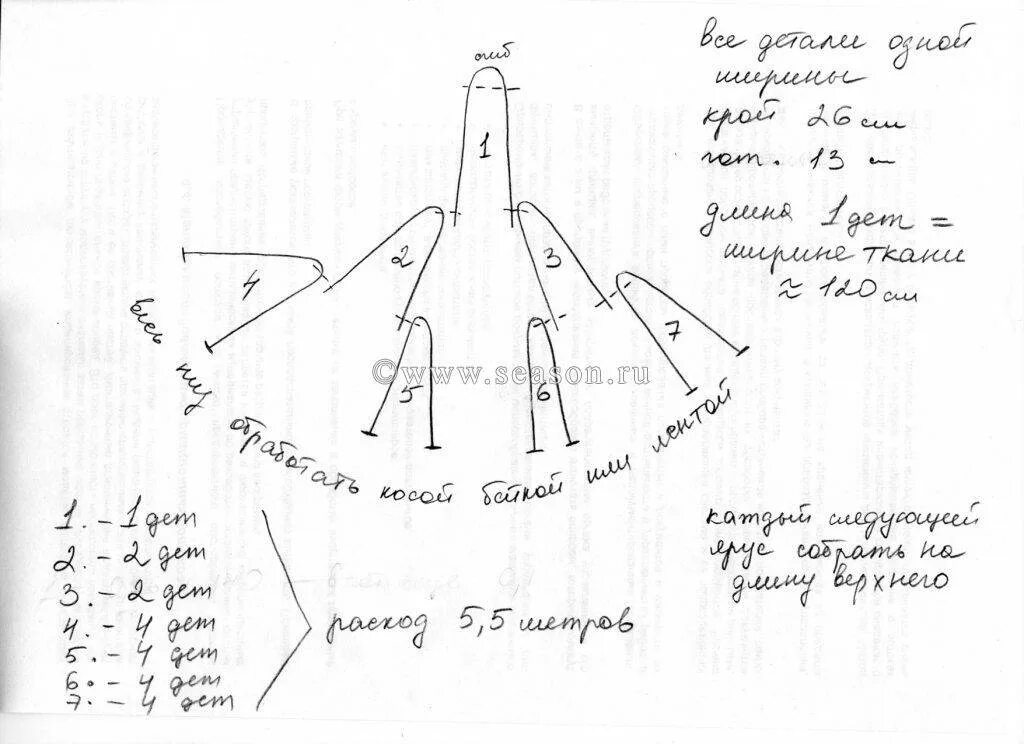 сгиб
все детали одной
ширины
крой 26 см
гот. 13 см
длина 1 дет =
ширине ткани
≈ 120 см
1
2
3
4
5
6
7
©www.season.ru
весь низ обработать косой бейкой или лентой
1. - 1 дет
2. - 2 дет
3. - 2 дет
4. - 4 дет
5. - 4 дет
6. - 4 дет
7. - 4 дет
расход 5,5 метров
каждый следующей
ярус собрать на
длину верхнего